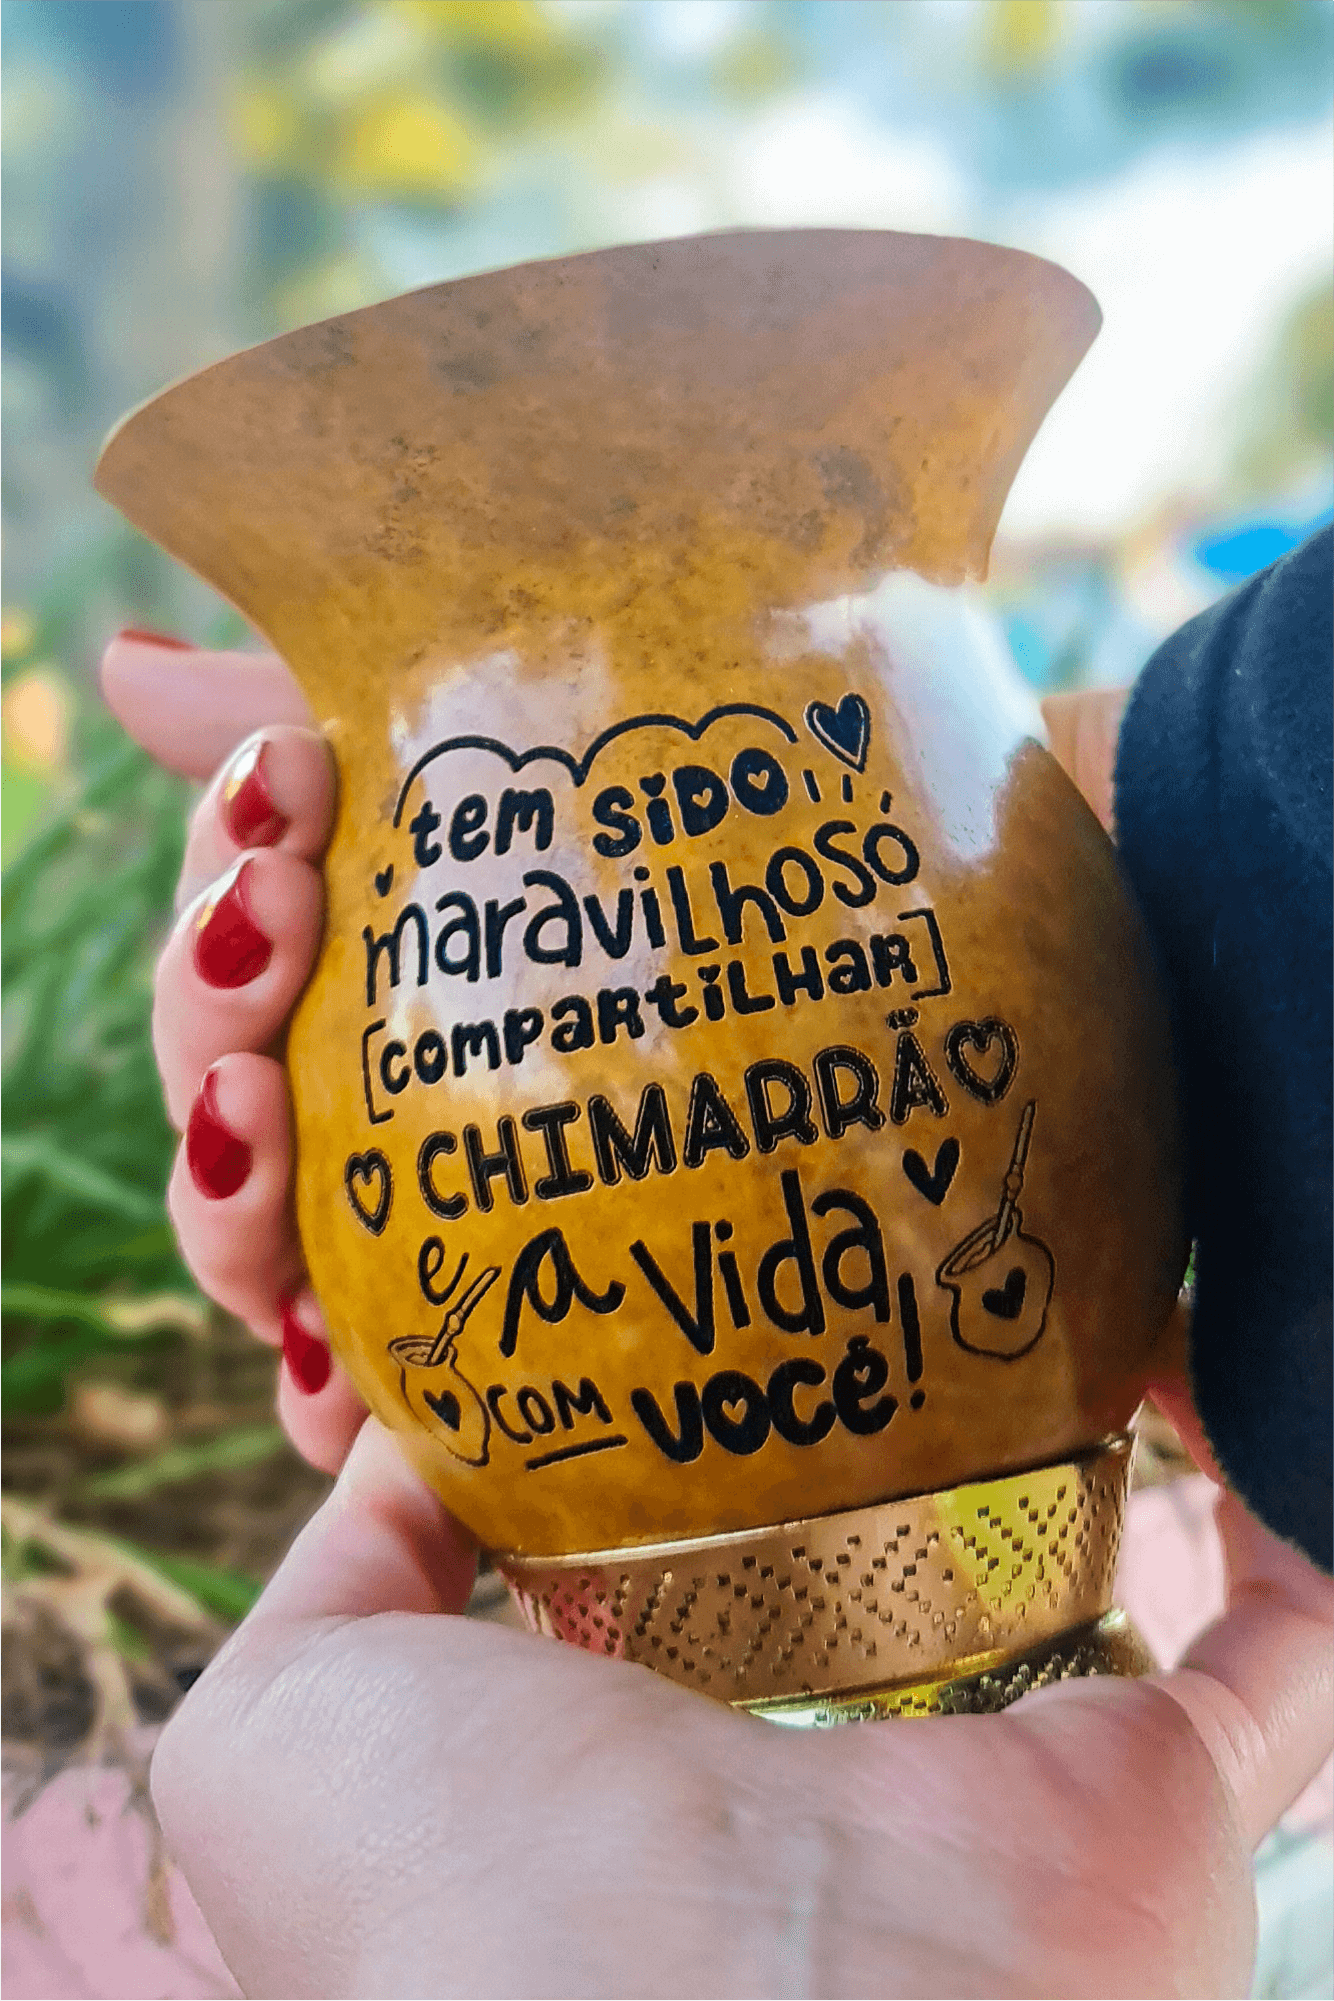 tem sido
maravilhoso
[compartilhar]
CHIMARRÃO
e a vida
com você!